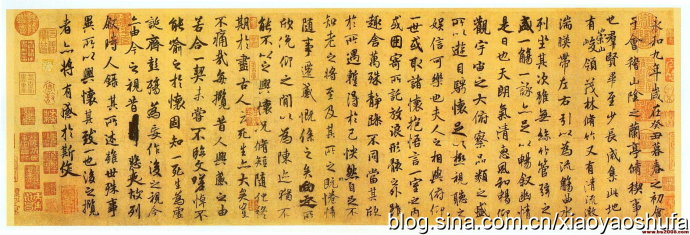 永和九年歲在癸丑暮春之初會
于會稽山陰之蘭亭脩稧事
也羣賢畢至少長咸集此地
有崇山峻領茂林脩竹又有清流激
湍暎帶左右引以為流觴曲水
列坐其次雖無絲竹管弦之
盛一觴一詠亦足以暢敘幽情
是日也天朗氣清惠風和暢仰
觀宇宙之大俯察品類之盛
所以遊目騁懷足以極視聽之
娛信可樂也夫人之相與俯仰
一世或取諸懷抱悟言一室之內
或因寄所託放浪形骸之外雖
趣舍萬殊靜躁不同當其欣
於所遇蹔得於己怏然自足不
知老之將至及其所之既惓情
隨事遷感慨係之矣向之所
欣俛仰之間以為陳迹猶不
能不以之興懷況脩短隨化終
期於盡古人云死生亦大矣豈
不痛哉每攬昔人興感之由
若合一契未嘗不臨文嗟悼不
能喻之於懷固知一死生為虛
誕齊彭殤為妄作後之視今
亦由今之視昔悲夫故列
敘時人錄其所述雖世殊事
異所以興懷其致一也後之攬
者亦將有感於斯文
blog.sina.com.cn/xiaoyaoshufa